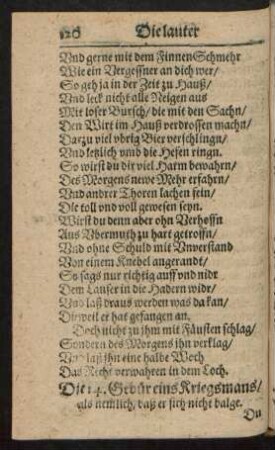 120 Die lauter
Vnd gerne mit dem Finnen Schmehr
Wie ein Vergessner an dich wer/
So geh ja in der Zeit zu Hauß/
Vnd leck nicht alle Neigen aus
Mit loser Bursch/ die mit den Sachn/
Den Wirt im Hauß verdrossen machn/
Darzu viel vbrig Bier verschlingn/
Vnd letzlich vmb die Hefen ringn.
So wirst du dir viel Harm bewahrn/
Des Morgens newe Mehr erfahrn/
Vnd andrer Thoren lachen fein/
Die toll vnd voll gewesen seyn.
Wirst du denn aber ohn Verhoffn
Aus Vbermuth zu hart getroffn/
Vnd ohne Schuld mit Vnverstand
Von einem Knebel angerandt/
So sags nur richtig auff vnd nidr
Dem Lanser in die Hadern widr/
Vnd laß draus werden was da kan/
Dieweil er hat gefangen an.
Doch nicht zu jhm mit Fäusten schlag/
Sondern des Morgens jhn verklag/
Vnd laß jhn eine halbe Woch
Das Recht verwahren in dem Loch.
Die 14. Gebür eins Kriegsmans/
als nemlich, daß er sich nicht balge.
Du